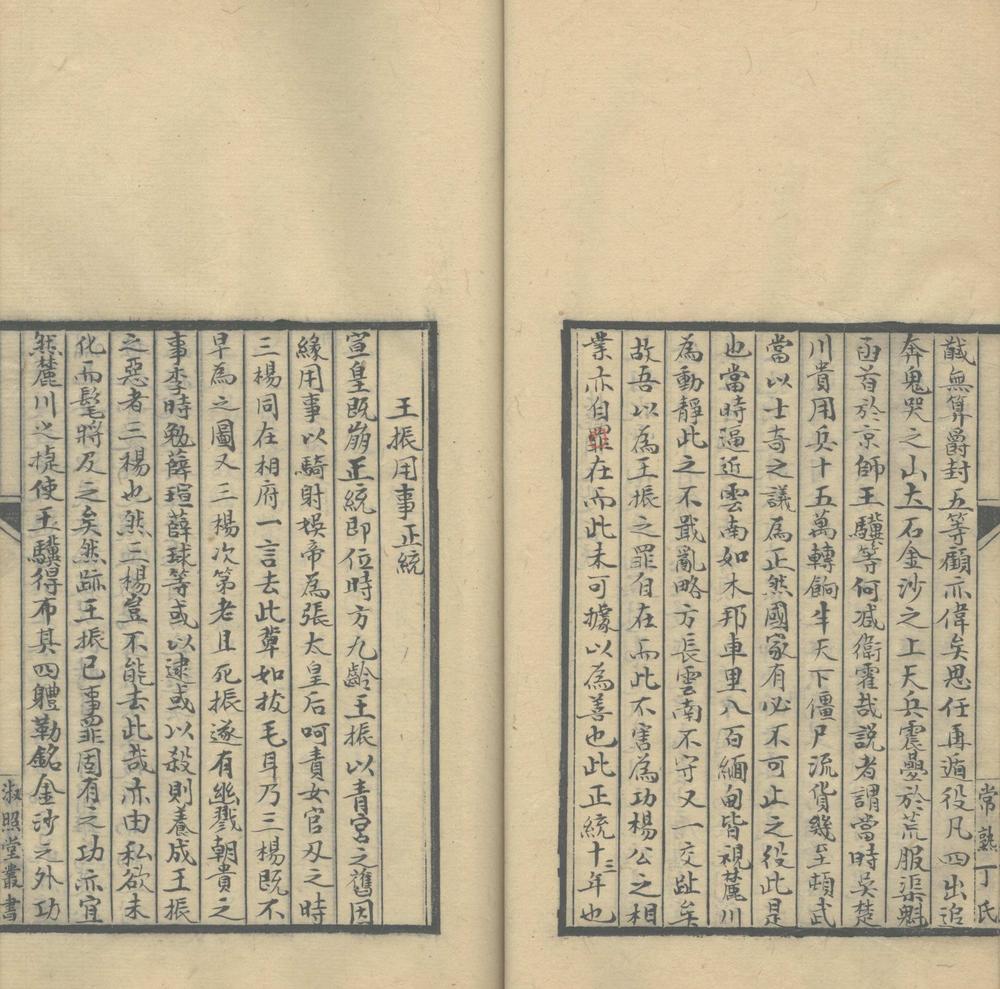 馘無算爵封五等顧亦偉矣思任再遁役凡四出追
奔鬼哭之山大石金沙之上天兵震疊於荒服渠魁
函首於京師王驥等何减衛霍哉説者謂當時吳楚
川貴用兵十五萬轉餉半天下僵尸流貨幾至頓武
當以士奇之議為正然國家有必不可止之役此是
也當時逼近雲南如木邦車里八百緬甸皆視麓川
為動靜此之不戢亂略方長雲南不守又一交趾矣
故吾以為王振之罪自在而此不害為功楊公之相
業亦自在而此未可據以為善也此正統十三年也
常熟丁氏
王振用事正統
宣皇既崩正統即位時方九齡王振以青宮之舊因
緣用事以騎射娛帝為張太皇后呵責女官刃之時
三楊同在相府一言去此輩如拔毛耳乃三楊既不
早為之圖又三楊次第老且死振遂有幽戮朝貴之
事李時勉薛瑄薛球等或以逮或以殺則養成王振
之惡者三楊也然三楊豈不能去此哉亦由私欲未
化而髦將及之矣然跡王振已事罪固有之功亦宜
然麓川之捷使王驥得布其四體勒銘金沙之外功
淑照堂叢書